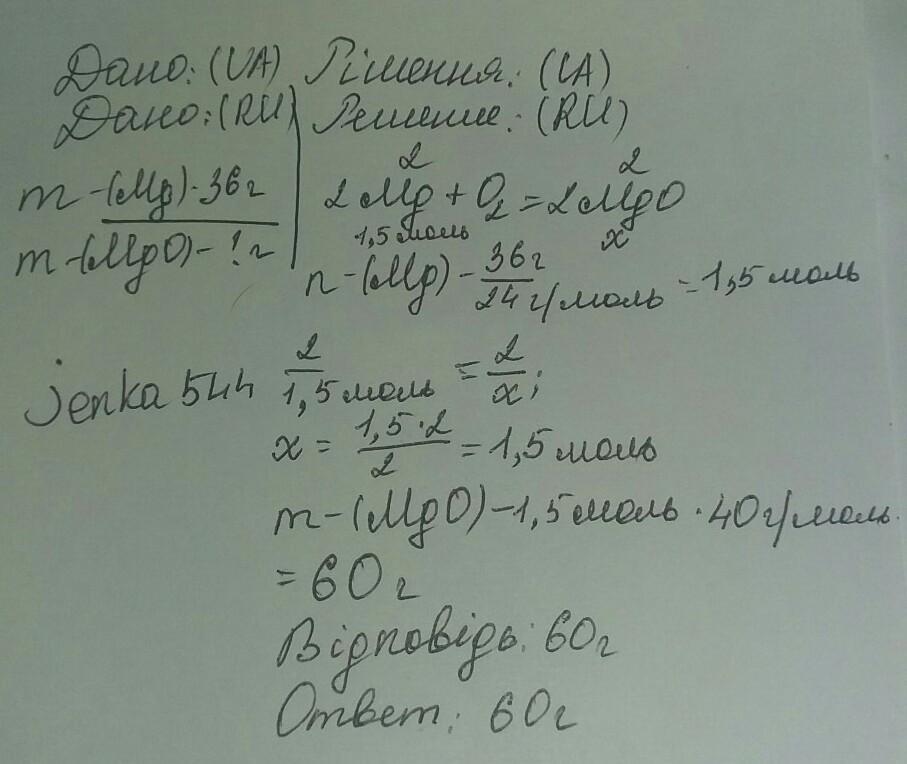 Дано: (UA) Рішення: (UA)
Дано: (RU) Решение: (RU)
m-(Mg)-36г
m-(MgO)-!г
2 2
2Mg+O₂=2MgO
1,5 моль x
n-(Mg)-36г/24г/моль=1,5 моль
jenka 544
2/1,5 моль=2/x;
x=1,5·2/2=1,5 моль
m-(MgO)-1,5 моль·40г/моль
=60г
Відповідь: 60г
Ответ: 60г